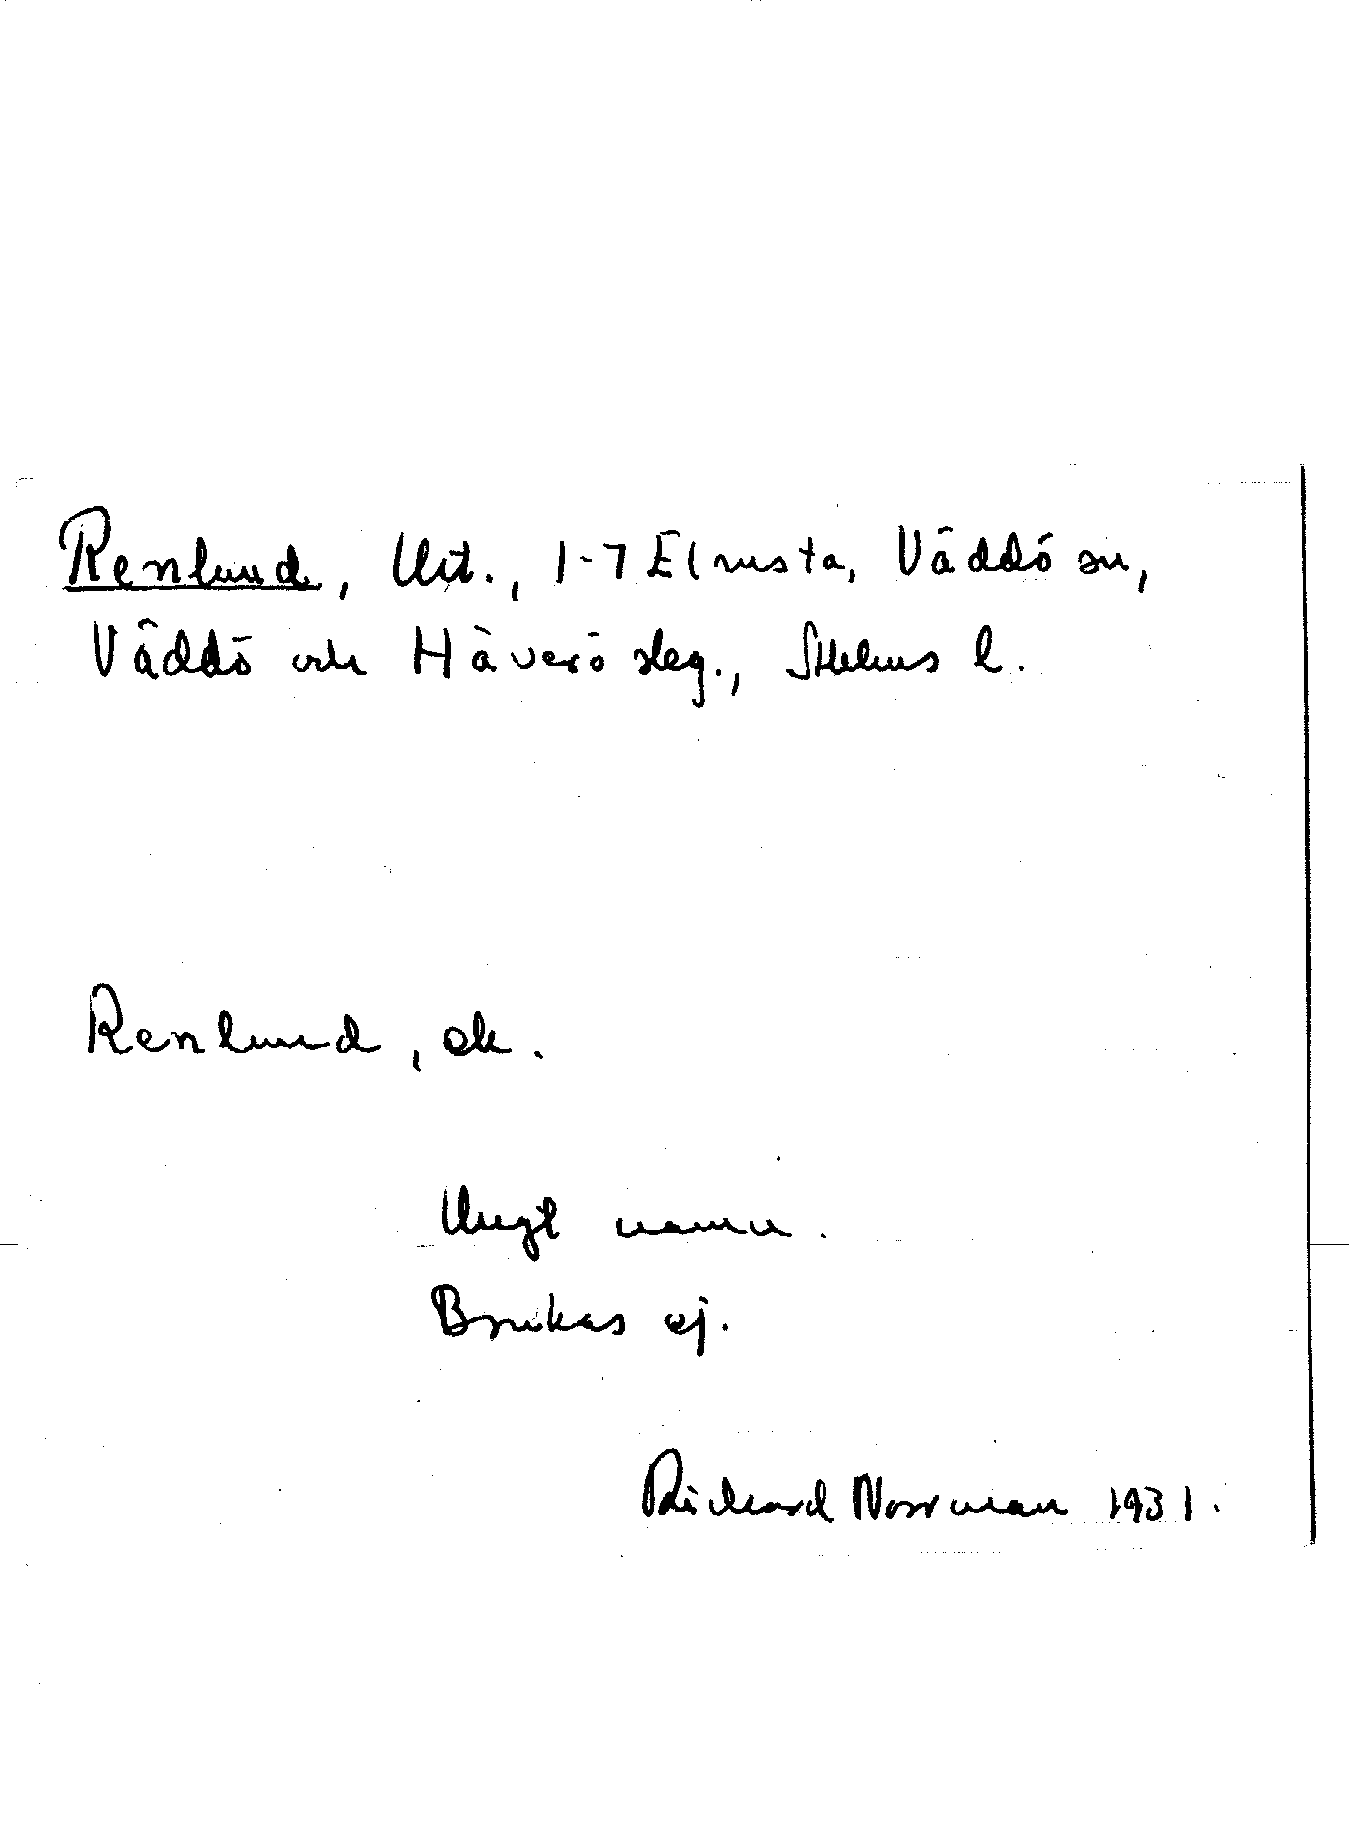 Renlund, Urt., 1-7 Elmsta, Väddö sn,
Väddö och Häverö skg., Sthlms l.
Renlund, ek.
Ungt namn.
Brukas ej.
Richard Norrman 1931.